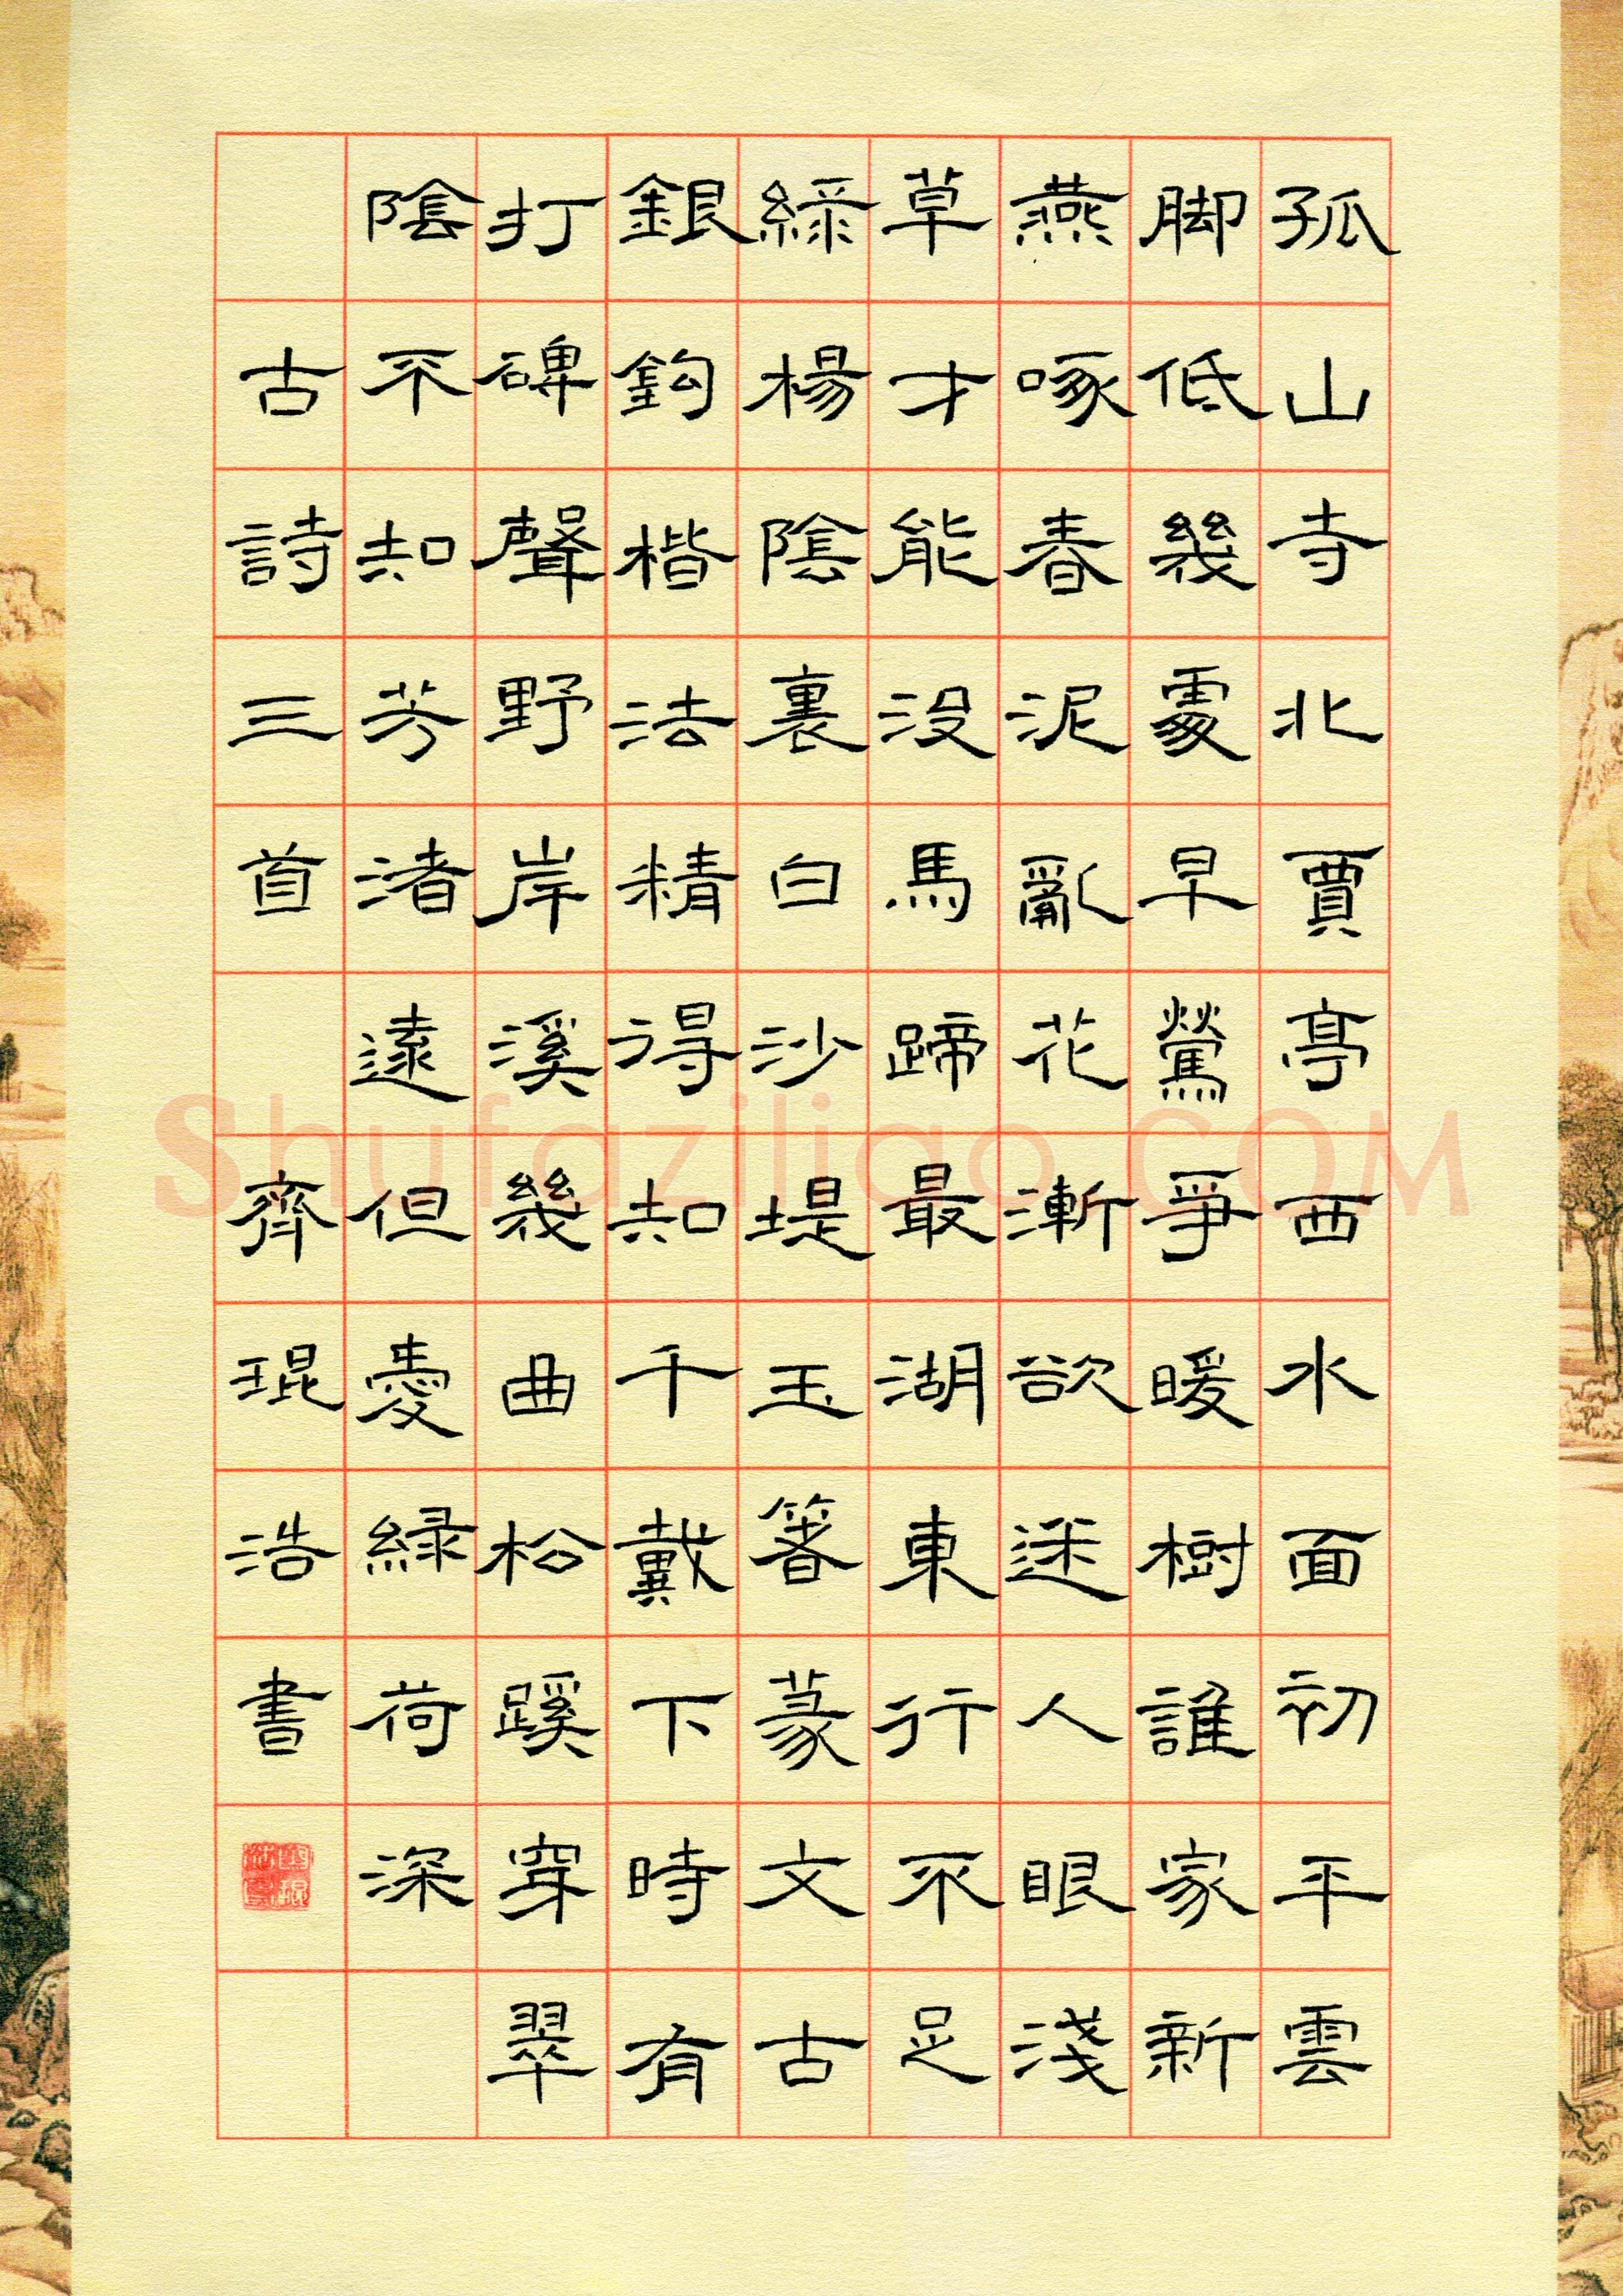 孤山寺北賈亭西水面初平雲
脚低幾處早鶯爭暖樹誰家新
燕啄春泥亂花漸欲迷人眼淺
草才能没馬蹄最湖東行不足
綠楊陰裏白沙堤玉箸篆文古
銀鈎楷法精得知千戴下時有
打碑聲野岸溪幾曲松蹊穿翠
陰不知芳渚遠但愛緑荷深
古詩三首 齊琨浩書
Shufaziliao.COM